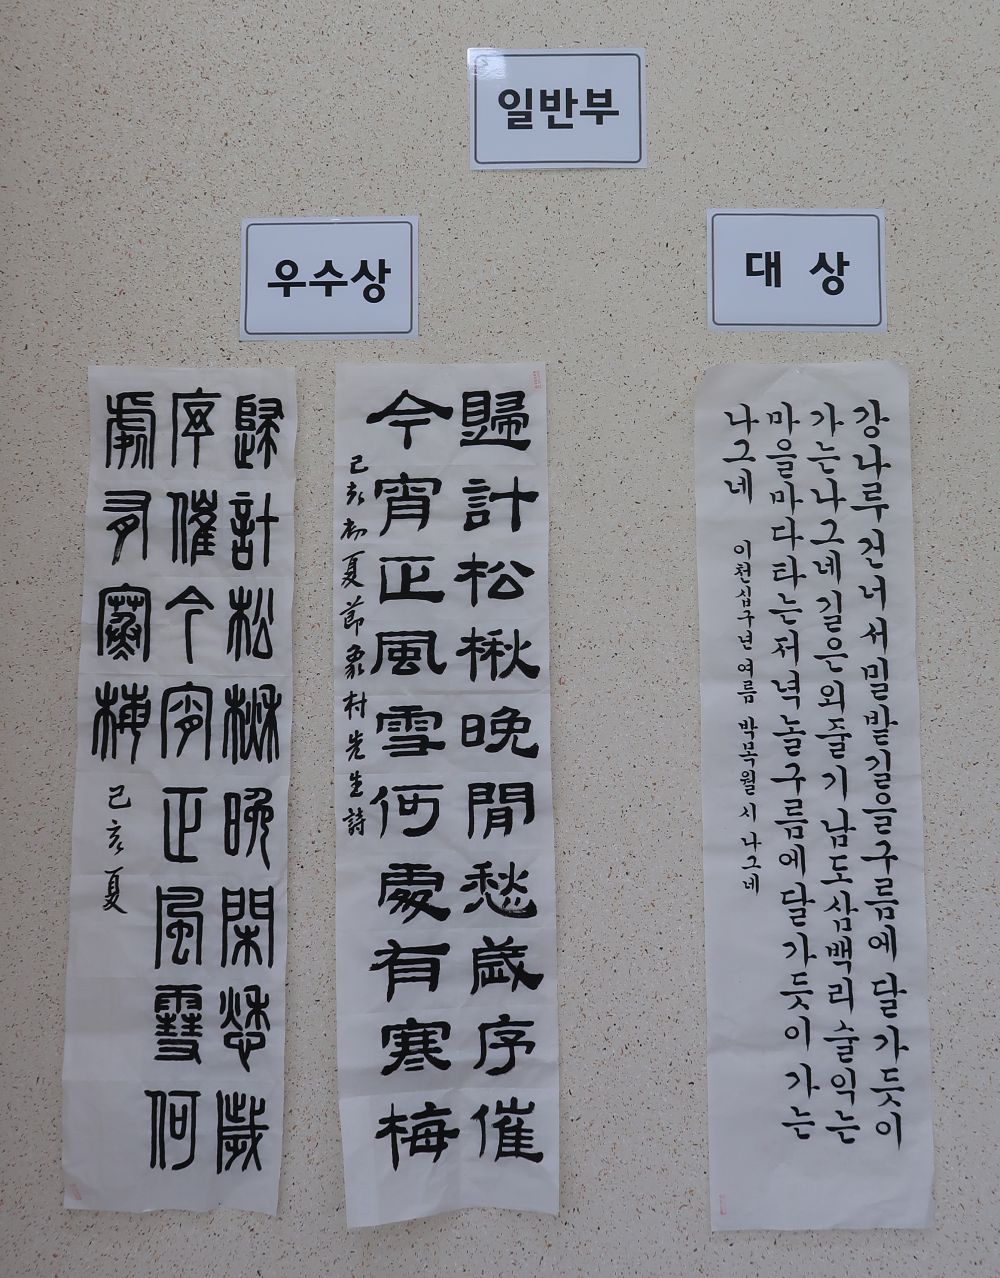 일반부
우수상
대 상
강나루건너서밀밭길을구름에달가듯이
가는나그네길은외줄기남도삼백리술익는
마을마다타는저녁놀구름에달가듯이가는
나그네 이천십구년여름 박목월 시 나그네
歸計松楸晩閒愁歲序催
今宵正風雪何處有寒梅
己亥初夏節象村先生詩
歸計松楸晩閑愁歲
序催今宵正風雪何
處有寒梅 己亥夏